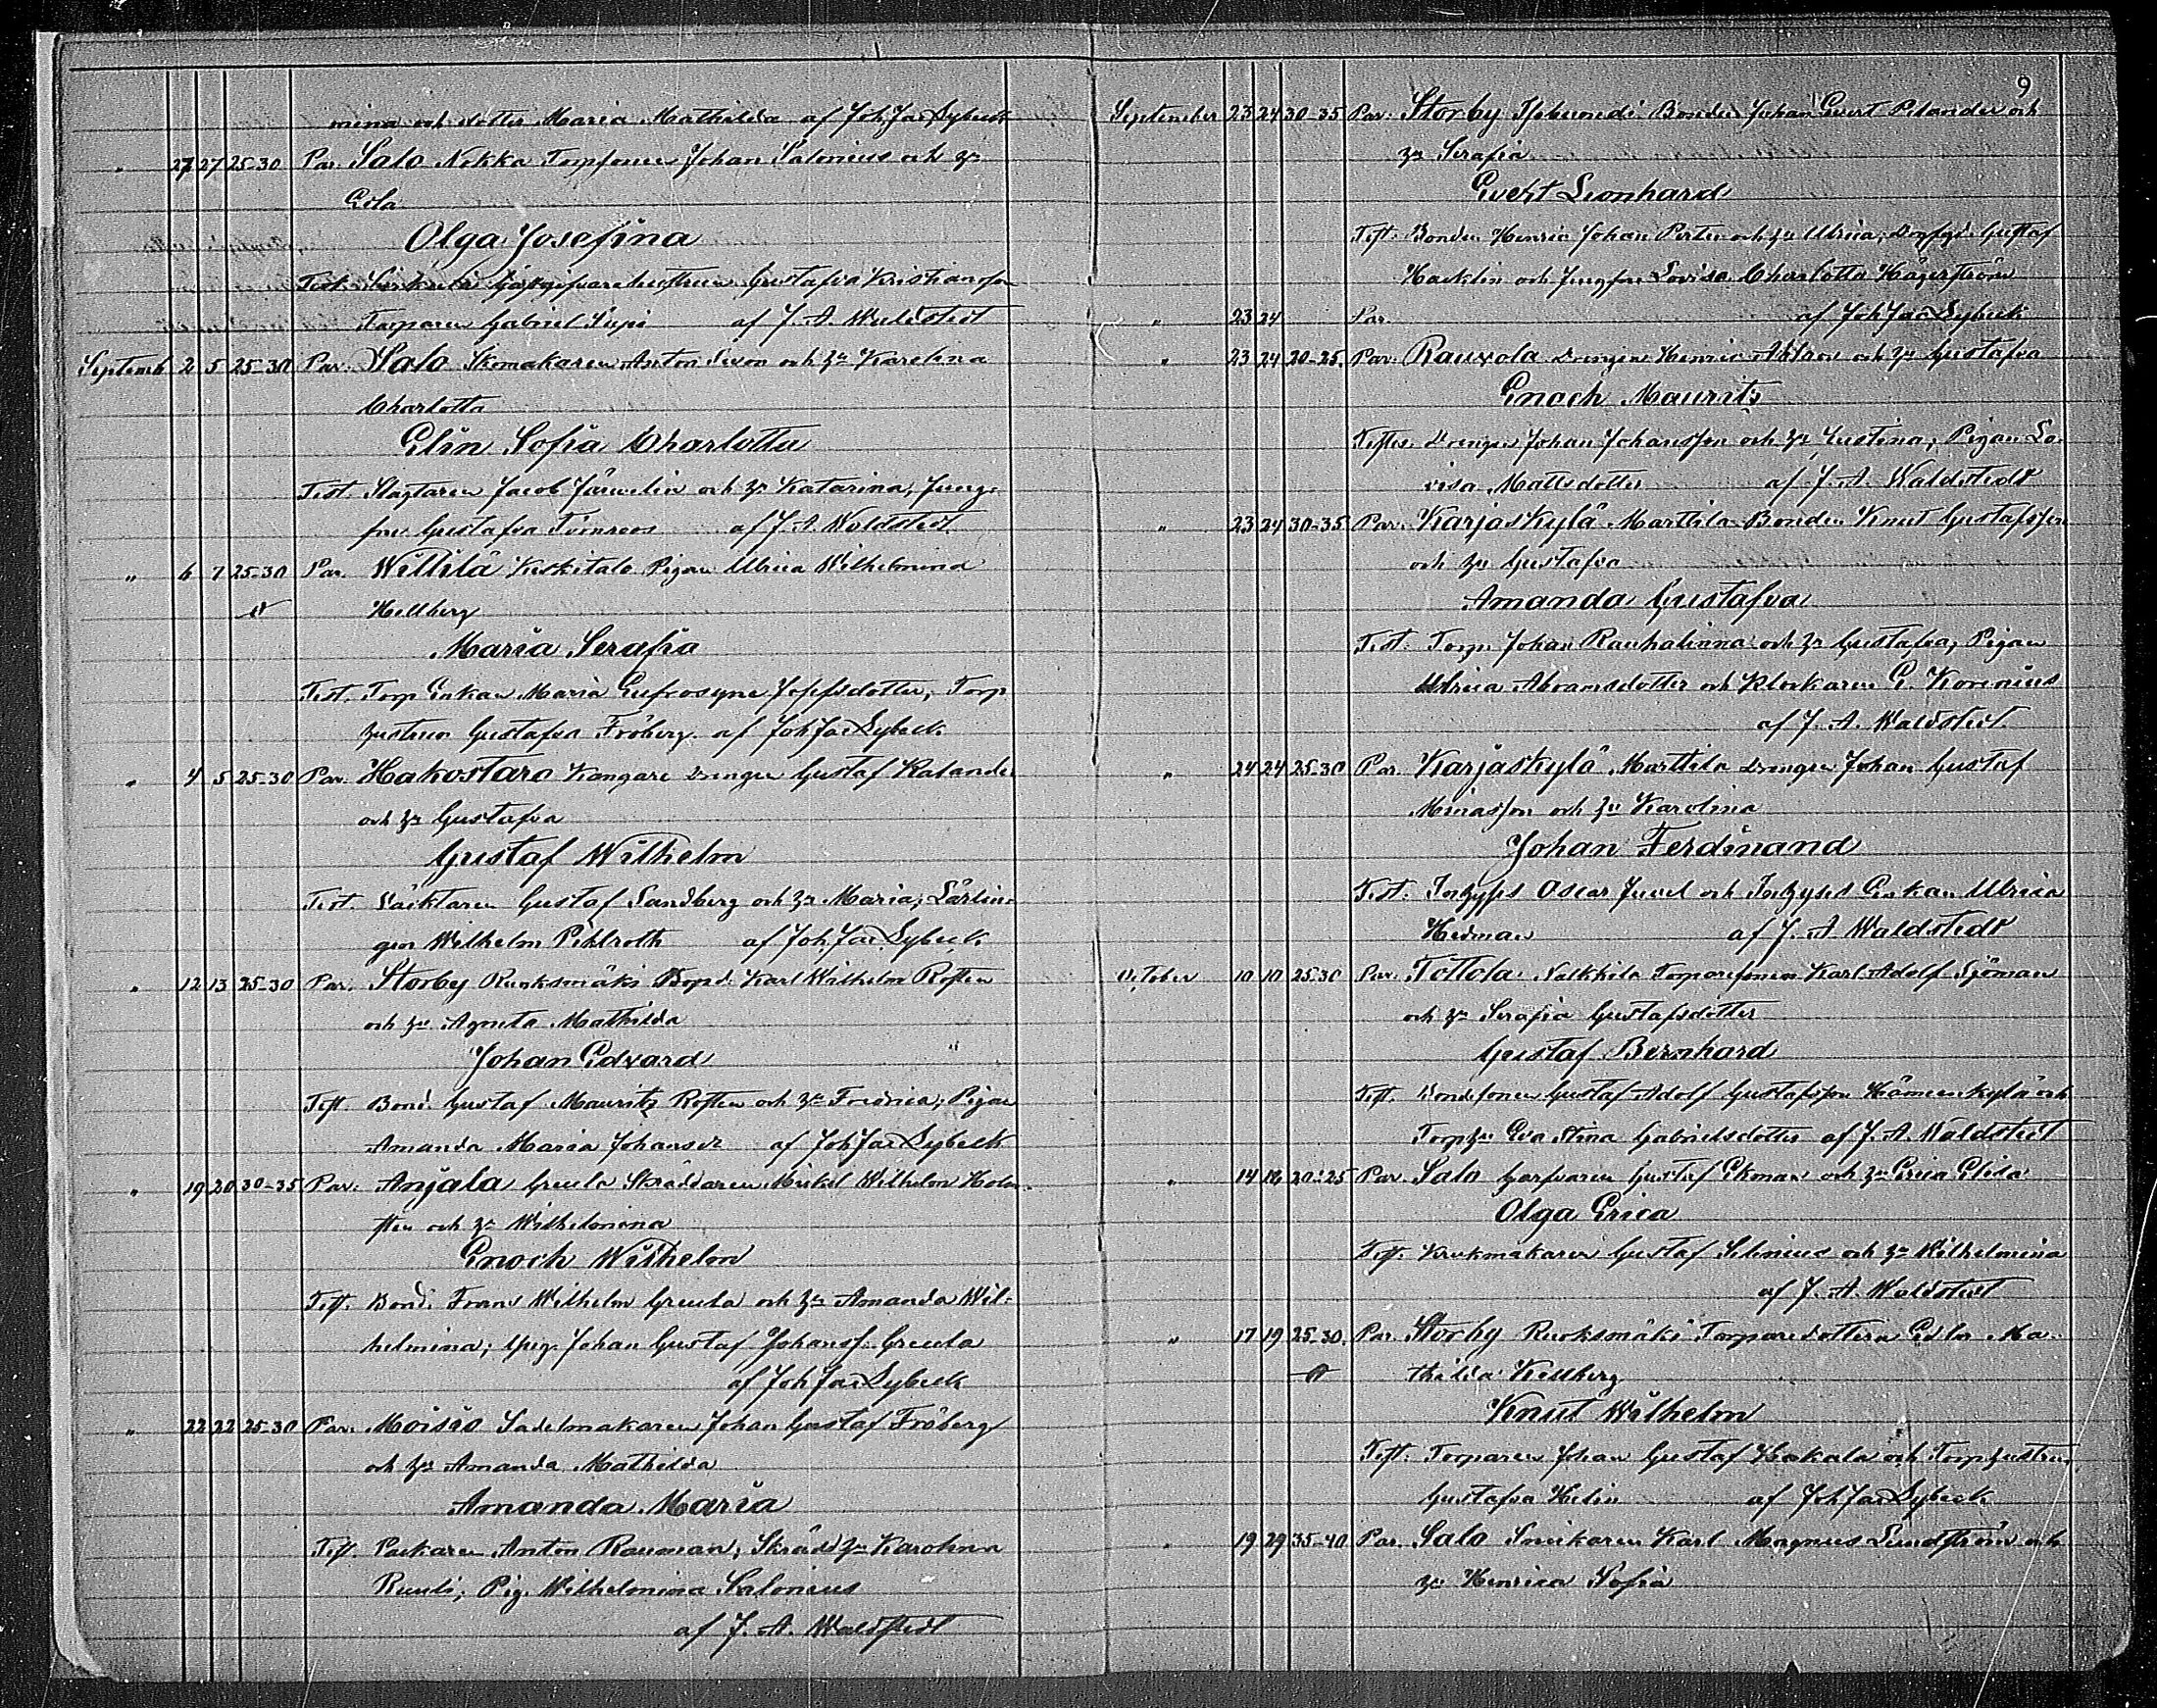 mina och dotter Maria Mathilda af Joh Jac Sybeck
" 27 27 25-30 Par. Salo Nokka Johan Salonius och hu
Eda
Olga Josefina
Test. Gustafva Kristiansson
Torparen Gabriel af J. A. Waldstedt
Septemb 2 5 25-30 Par. Salo Skomakaren Anton och hu Karolina
Charlotta
Elin Sofia Charlotta
Test. Jacob och hu Katarina, Jung-
fru Gustafva Törnroos af J. A. Waldstedt
" 6 7 25-30 Par. Wittilä Keskitalo Pigan Ulrica Wilhelmina
Hellberg
Maria Serafia
Test. Torp Enkan Maria Eufrosyne Josefsdotter, Torp
hustrun Gustafva Fröberg af Joh Jac Sybeck
" 4 5 25-30 Par. Hakostaro Kangare Drengen Gustaf Kalander
och hu Gustafva
Gustaf Wilhelm
Test. Gustaf Sandberg och hu Maria, Lärlin-
gen Wilhelm Pihlroth af Joh. Jac. Sybeck
" 12 13 25-30 Par. Storby Ruoksmäki Bond. Karl Wilhelm Rosten
och hu Agneta Mathilda
Johan Edvard
Test. Bond. Gustaf Mauritz Rosten och hu Fredrica, Pigan
Amanda Maria Johansdr af Joh Jac Sybeck
" 19 20 30-35 Par. Anjala Greula Skräddaren Mickel Wilhelm Holm-
sten och hu Wilhelmina
Enoch Wilhelm
Test. Bond. Frans Wilhelm Greula och hu Amanda Wil-
helmina, Johan Gustaf Johanss. Greula
af Joh Jac Sybeck
" 22 22 25-30 Par. Moisio Sadelmakaren Johan Gustaf Fröberg
och hu Amanda Mathilda
Amanda Maria
Test. Packaren Anton Rauman, Skräd hu Karolina
Ruuli, Pig. Wilhelmina Salonius
af J. A. Waldstedt
9
September 23 24 30-35 Par. Storby Bonden Johan Evert Pelander och
hu Serafia
Evert Leonhard
Test. Bonden Henric Johan och hu Ulrica, Gustaf
Hacklin och Jungfru Lovisa Charlotta Hägerström
" 23 24 Par. af Joh Jac Sybeck
" 23 24 20-25 Par. Rauvola Drengen Henric Ahlroos och hu Gustafva
Enoch Maurits
Testes. Drengen Johan Johansson och hu Justina, Pigan Lo-
visa Mattsdotter af J. A. Waldstedt
" 23 24 30-35 Par. Karjaskylä Marttila Bonden Knut Gustafsson
och hu Gustafva
Amanda Gustafva
Test. Torp. Johan Rauhalinna och hu Gustafva, Pigan
Ulrica Abramsdotter och Klockaren G. Korenius
af J. A. Waldstedt
" 24 24 25-30 Par. Karjaskylä Marttila Drengen Johan Gustaf
Minasson och hu Karolina
Johan Ferdinand
Test. Oscar Juvel och Enkan Ulrica
Hedman af J. A. Waldstedt
October 10 10 25-30 Par. Tottola Nalkkila Torparesonen Karl Adolf Sjöman
och hu Serafia Gustafsdotter
Gustaf Bernhard
Test. Bondesonen Gustaf Adolf Gustafsson Hämeenkylä och
Torp hu Eva Stina Gabrielsdotter af J. A. Waldstedt
" 14 16 20-25 Par. Salo Garfvaren Gustaf Ekman och hu Erica Elida
Olga Erica
Test. Krukmakaren Gustaf Selenius och hu Wilhelmina
af J. A. Waldstedt
" 17 19 25-30 Par. Storby Ruoksmäki Torparedottern Edla Ma-
thilda Kellberg
Knut Wilhelm
Test. Torparen Johan Gustaf Hakala och Torp hustrun
Gustafva Helin af Joh Jac Sybeck
" 19 29 35-40 Par. Salo Snickaren Karl Magnus Lundström och
hu Henrica Sofia